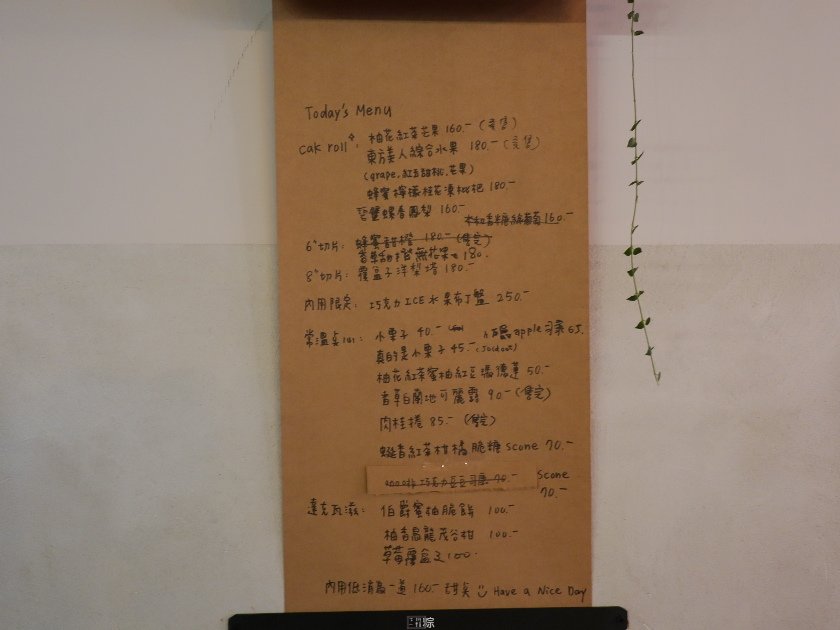 Today's Menu
cak roll: 柚花紅茶芒果 160.- (完售)
東方美人綜合水果 180.- (完售)
(grape, 紅玉甜桃, 芒果)
蜂蜜檸檬桂花凍枇杷 180.-
螺香鳳梨 160.-
香糖綜葡萄 160.-
6"切片: 蜂蜜甜橙 180.- (售完)
無花果 180.
8"切片: 覆盆子洋梨塔 180.-
內用限定: 巧克力 ICE 水果布丁盤 250.-
常溫點心: 小栗子 40.- apple司康 65.
真的是小栗子 45.- (sold out)
柚花紅茶蜜柚紅豆瑪德蓮 50.-
香草白蘭地可麗露 90.- (售完)
肉桂捲 85.- (售完)
蜒香紅茶柑橘脆糖 scone 70.-
巧克力豆豆司康 70.- scone
70.-
達克瓦滋: 伯爵蜜柚脆餅 100.-
柚香烏龍茂谷柑 100.-
草莓覆盆子 100.
內用低消為一道 160.- 甜點 Have a Nice Day